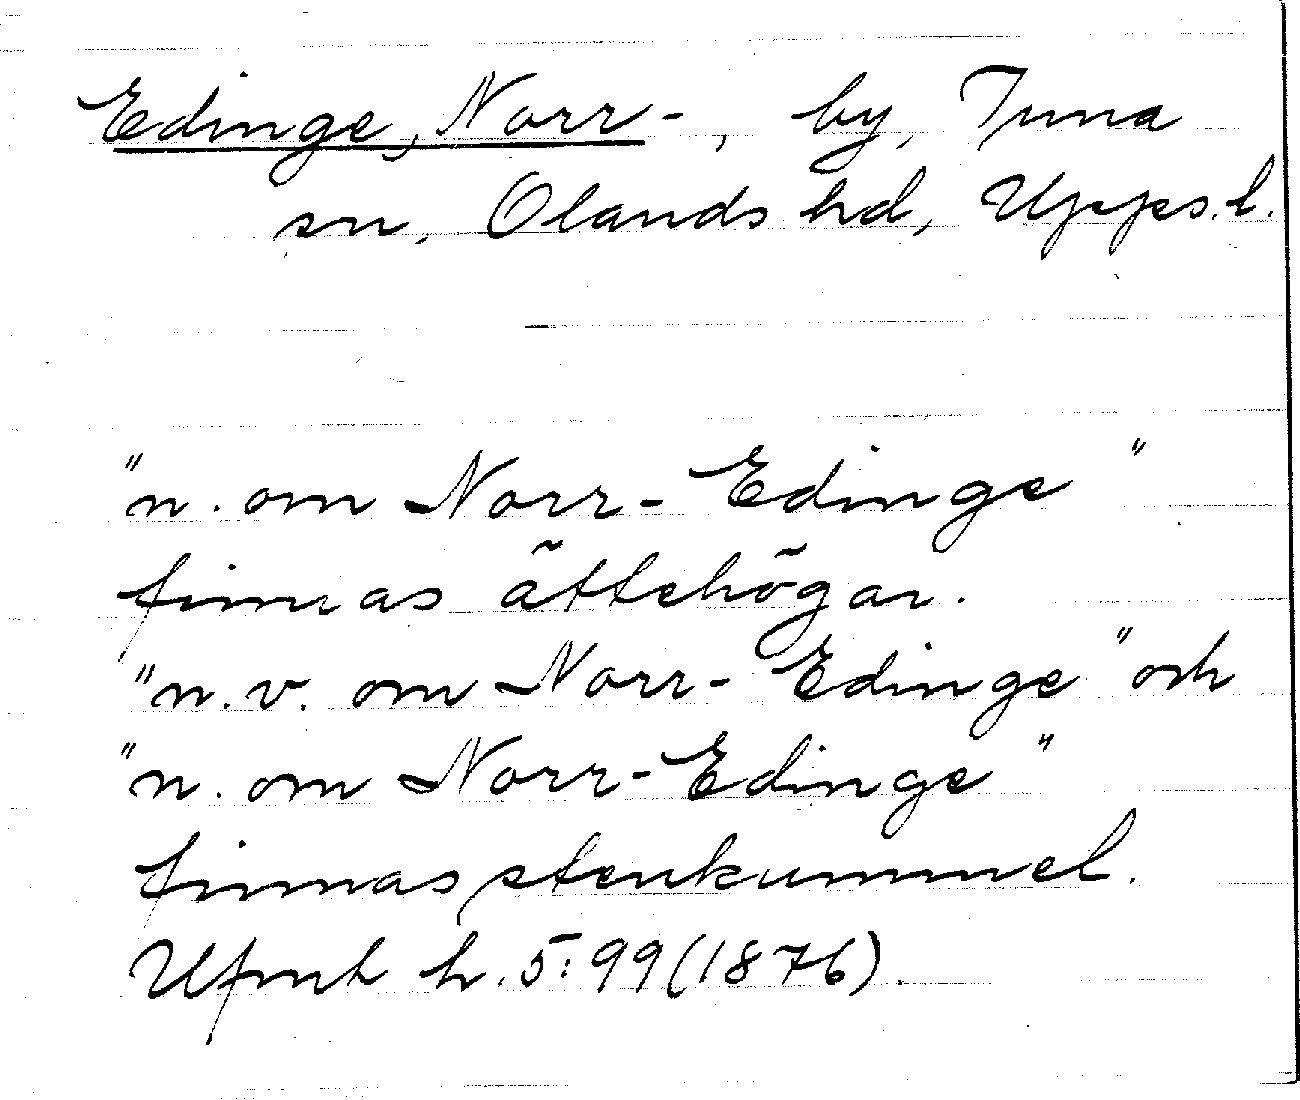 Edinge, Norr-, by, Tuna
sn, Olands hd, Upps. l.
"n. om Norr-Edinge"
finnas ättehögar.
"n.v. om Norr-Edinge" och
"n. om Norr-Edinge"
finnas stenkummel.
Ufmt h. 5:99 (1876).